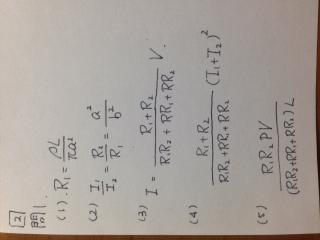 [2]
問II.
(1). R₁ = ρL/πa²
(2) I₁/I₂ = R₂/R₁ = a²/b²
(3) I = (R₁+R₂)/(R₁R₂+RR₁+RR₂) V.
(4) (R₁+R₂)/(R₁R₂+RR₁+RR₂) (I₁+I₂)²
(5) R₁R₂ρV/((R₁R₂+RR₁+RR₂)L)